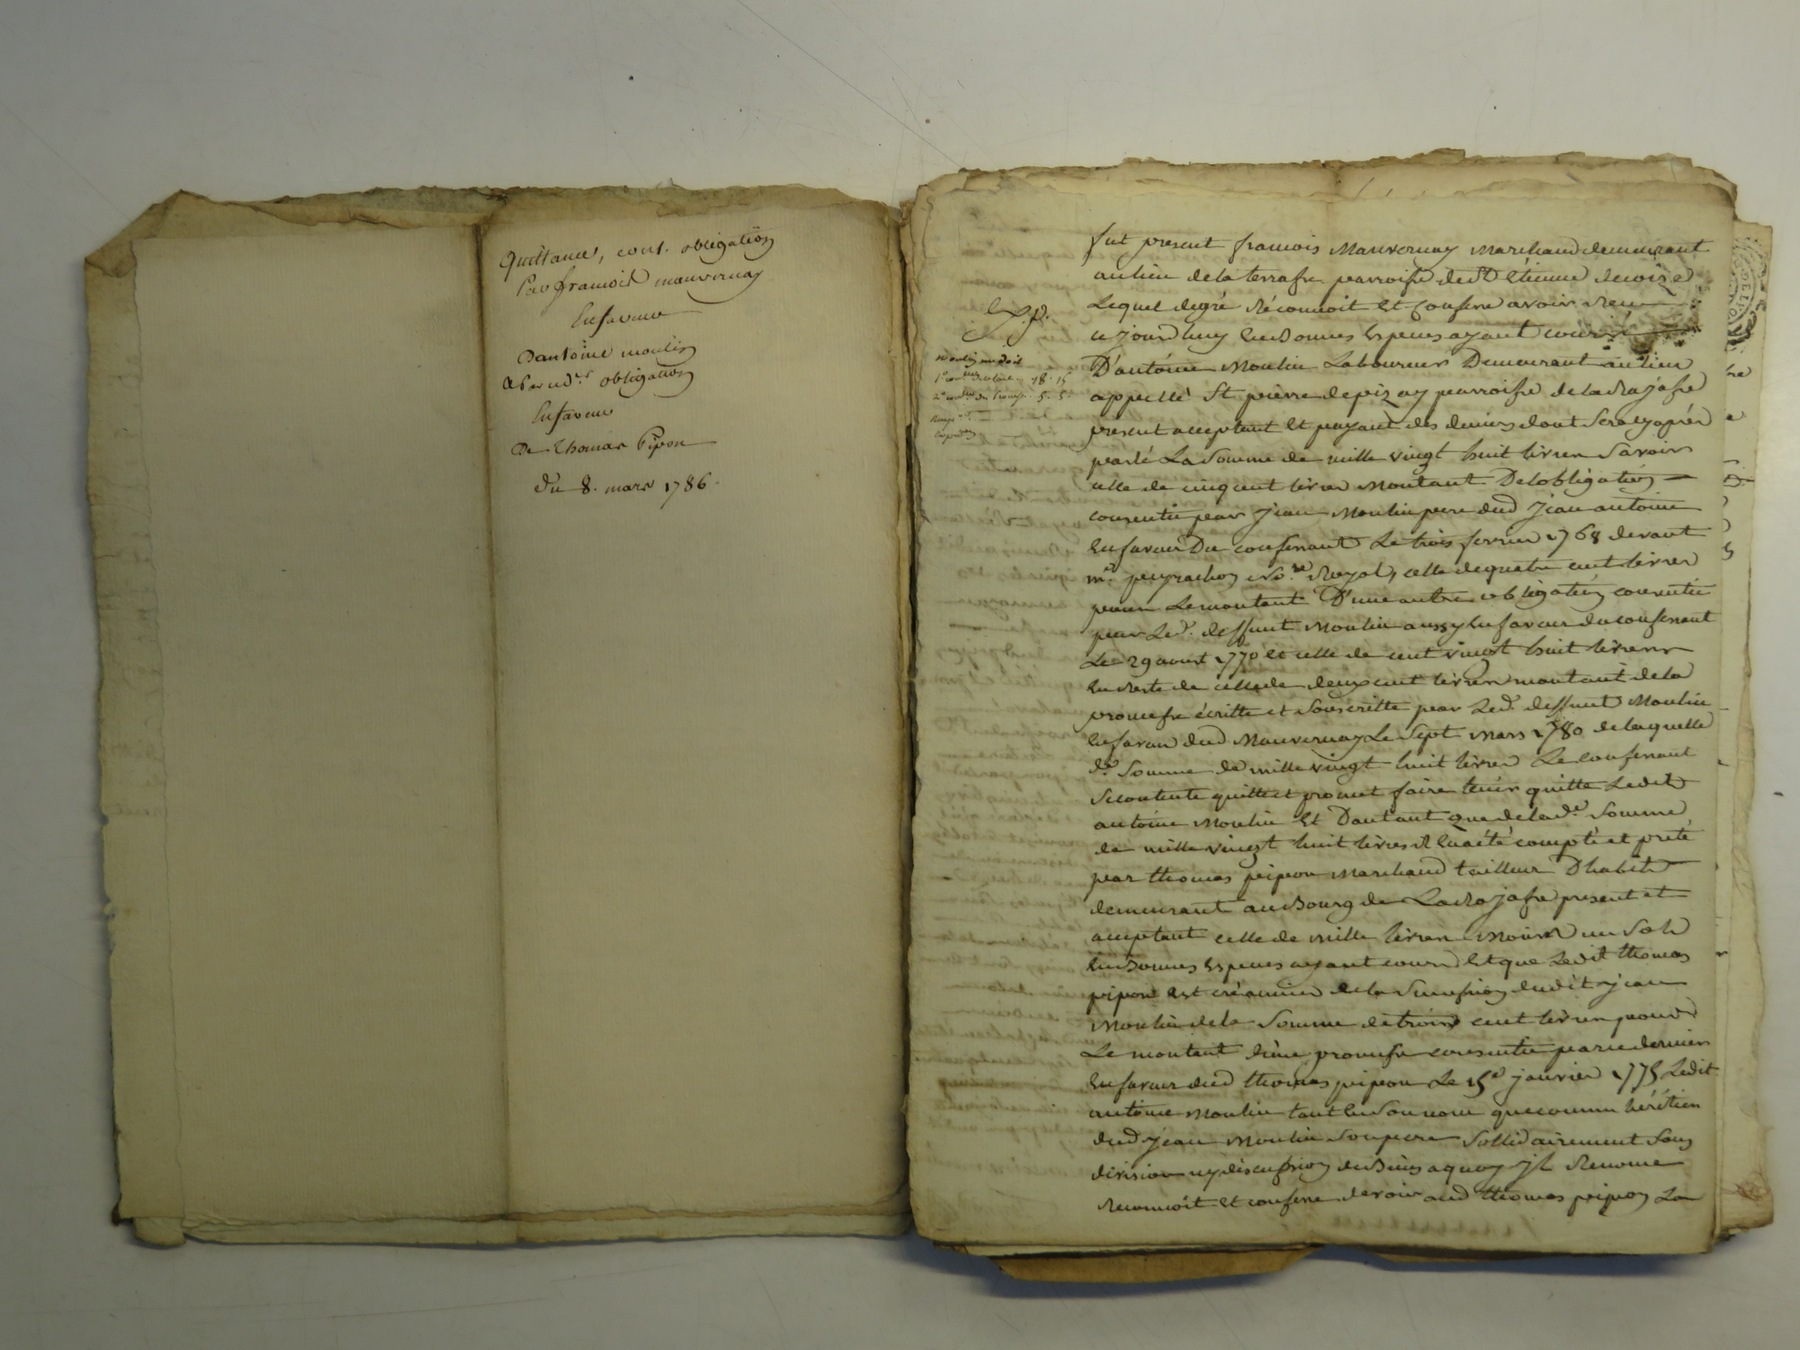 Quittance, cont. obligation
Par francois mauvernay
En faveur
D'antoine moulin
obligation
En faveur
De Thomas Pipon
du 8. mars 1786.
fut present francois Mauvernay Marchand demeurant
au lieu de la terrasse parroisse de St etienne
Lequel degré réconnoit Et Confesse avoir reçu
cejourdhuy En Bonnes Especes ayant cours
Exp.
D'antoine Moulin Laboureur Demeurant au lieu
appellé St pierre depizay parroisse de la Rajasse
present acceptant Et payant des deniers dont Sera cy aprés
parlé La Somme de mille vingt huit livres Savoir
celle de cinq cent livres Montant De lobligation
consentie par jean Moulin pere dud jean antoine
En faveur Du confessant Le trois fevrier 1768 devant
me. peyrachon No.re Royal, celle de quatre cent livres
pour Le montant D'une autre obligation consentie
par Led. deffunt Moulin aussy En faveur du confessant
Le 29 aoust 1770 et celle de cent vingt huit livres
En Reste de celle de deux cent livres montant de la
promesse écritte et Souscritte par Led. deffunt Moulin
En faveur dud Mauvernay Le Sept Mars 1780 de laquelle
de. Somme de mille vingt huit livres Le confessant
Se contente quitte et promet faire tenir quitte Ledit
antoine Moulin Et Dautant que de lade. Somme
de mille vingt huit livres il En a été compté et preté
par thomas pipon Marchand tailleur Dhabits
demeurant au Bourg de La Rajasse present et
acceptant celle de mille livres Moins un Sols
En Bonnes Especes ayant cours Et que Ledit thomas
pipon Est créancier de la Succession dudit jean
Moulin de la Somme de trois cent livres pour
Le montant d'une promesse consentie par ce dernier
En faveur dud thomas pipon Le 15e janvier 1775 Ledit
antoine Moulin tant En Son nom que comme héritier
dud jean Moulin Son pere Sollidairement Sans
division ny discussion de Biens a quoy jl Renonce
Reconnoit Et confesse devoir aud thomas pipon La